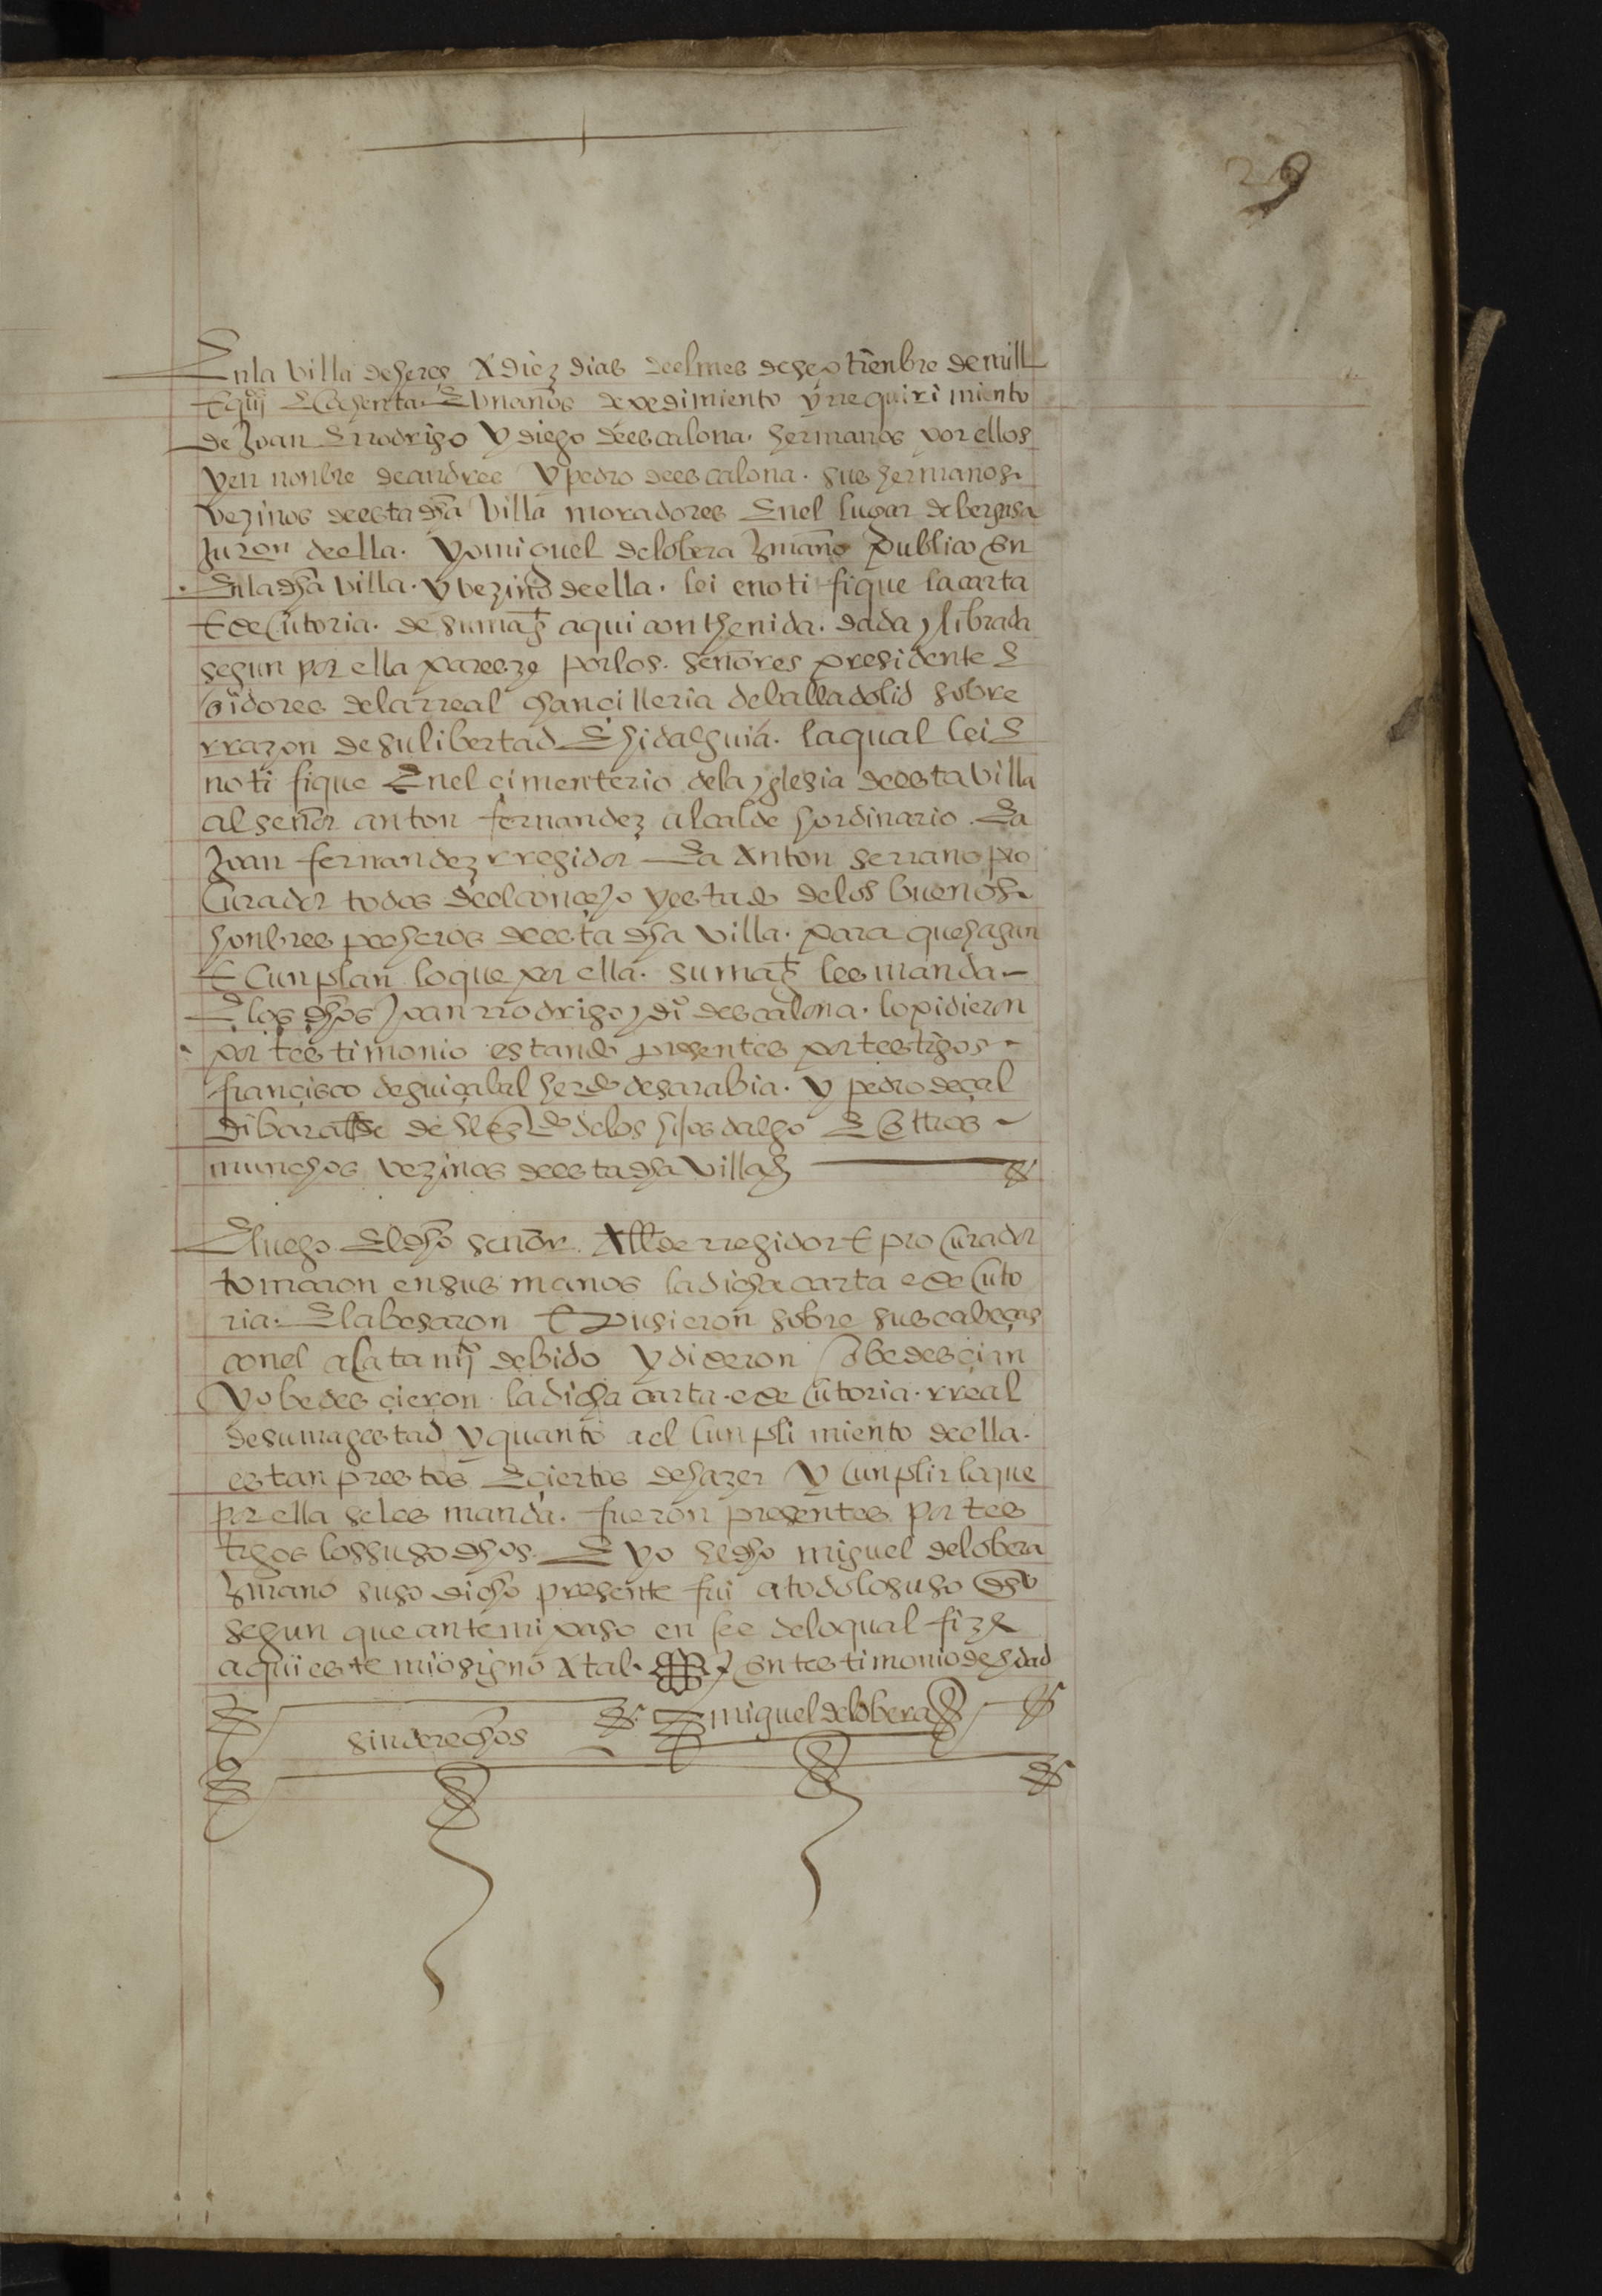 29
En la villa de heres A diez dias deel mes de septienbre de mill
E quis E sesenta E un años de pedimiento y rrequirimiento
de Joan E rrodrigo y diego de escalona. hermanos por ellos
y en nonbre de andres y pedro de escalona. sus hermanos
vezinos de esta dha villa moradores En el lugar de
Juron de ella. yo miguel de lobera publico En
En la dha villa. y vezino de ella. lei e notifique la carta
Executoria. de su magt aqui conthenida. dada y librada
segun por ella pareeze por los. señores presidente E
oidores de la rreal chancilleria de balladolid sobre
rrazon de su libertad E hidalguia. la qual lei E
notifique En el cimenterio de la yglesia de esta villa
al señor anton fernandez alcalde hordinario. E a
Joan fernandez rregidor E a Anton serrano pro
curador todos del concejo y estado de los buenos
honbres pecheros de esta dha villa. para que hagan
E cunplan lo que por ella. su magt les manda
E los dhos Joan rrodrigo y di descalona. lo pidieron
por testimonio estando presentes por testigos
francisco de guiçabal herdo de sarabia. y pedro de çal
dibar de los hijos dalgo E Otros
munchos vezinos de esta dha villa
E luego El dho señor Allde rregidor E procurador
tomaron en sus manos la dicha carta executo
ria. E la besaron E pusieron sobre sus cabeças
con el acatamio debido y dixeron obedescian
y obedescieron la dicha carta. executoria. rreal
de su magestad y quanto a el cunplimiento de ella.
estan prestos E ciertos de hazer y cunplir lo que
por ella se les manda. fueron presentes por tes
tigos los suso dhos. E yo El dho miguel de lobera
suso dicho presente fui a todo lo suso dho
segun que ante mi paso en fee de lo qual fize
aqui este mio signo A tal. En testimonio de vdad
miguel de lobera
sin derechos